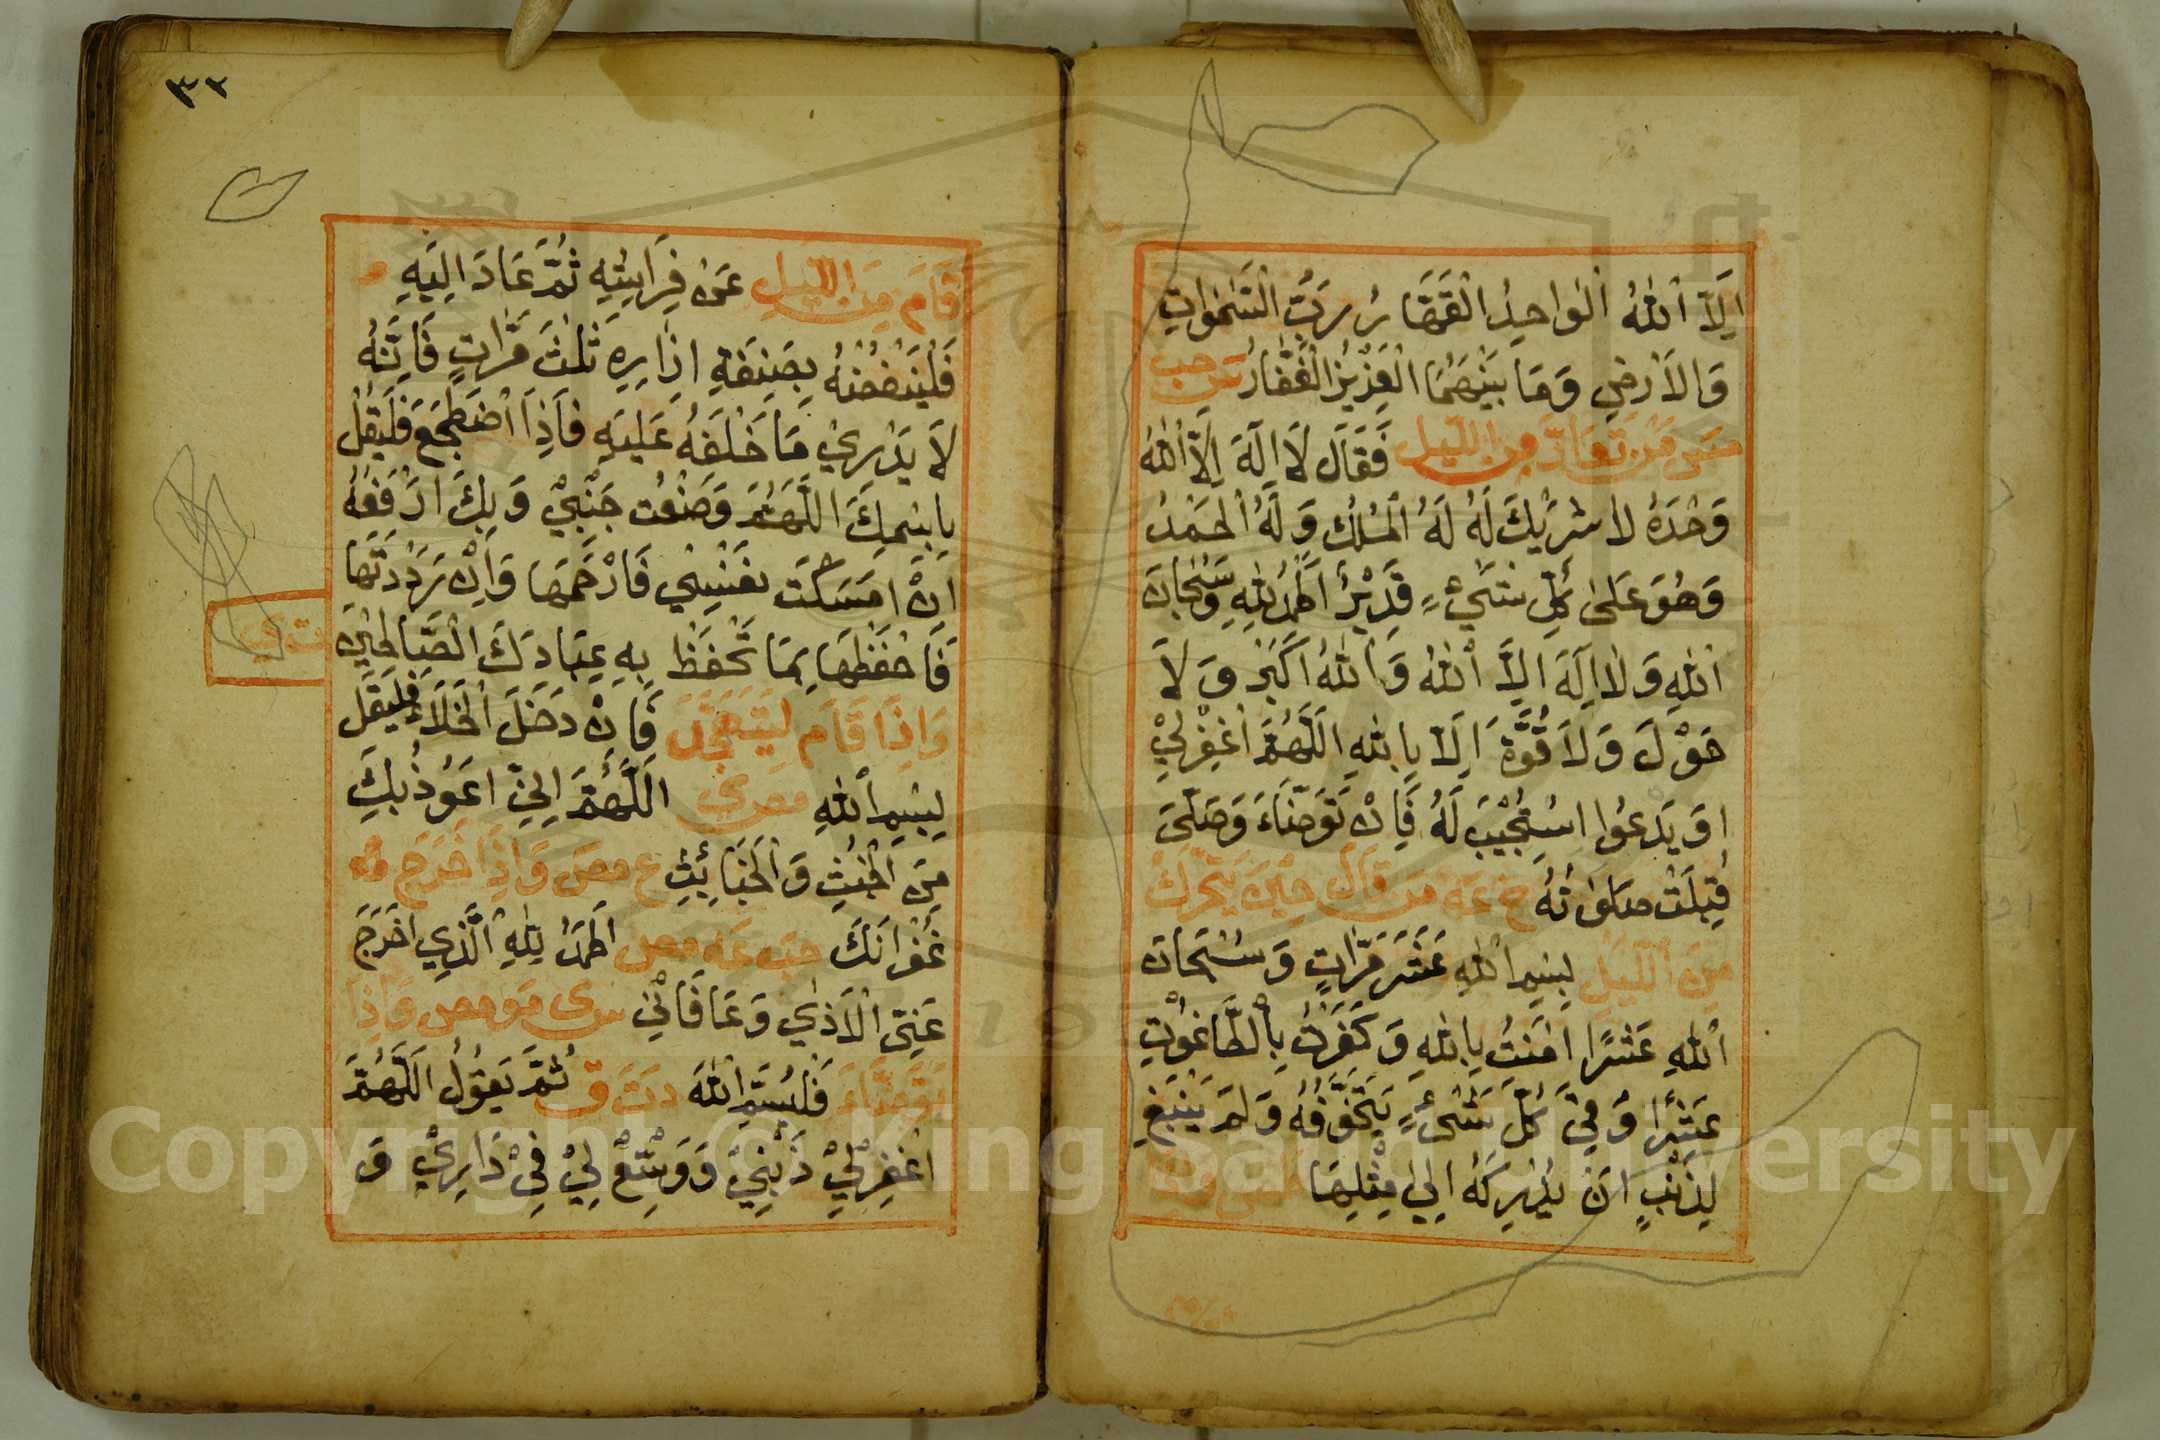 اِلَّا اللّٰهُ الْوَاحِدُ الْقَهَّارُ رَبُّ السَّمٰوَاتِ
وَالْاَرْضِ وَمَا بَيْنَهُمَا الْعَزِيْزُ الْغَفَّارُ س حب
مس مَنْ تَعَارَّ مِنَ اللَّيْلِ فَقَالَ لَا اِلٰهَ اِلَّا اللّٰهُ
وَحْدَهُ لَا شَرِيْكَ لَهُ لَهُ الْمُلْكُ وَلَهُ الْحَمْدُ
وَهُوَ عَلٰى كُلِّ شَيْءٍ قَدِيْرٌ اَلْحَمْدُ لِلّٰهِ وَسُبْحَانَ
اللّٰهِ وَلَا اِلٰهَ اِلَّا اللّٰهُ وَاللّٰهُ اَكْبَرُ وَلَا
حَوْلَ وَلَا قُوَّةَ اِلَّا بِاللّٰهِ اَللّٰهُمَّ اغْفِرْلِيْ
اَوْ يَدْعُوا اسْتُجِيْبَ لَهُ فَاِنْ تَوَضَّاَءَ وَصَلّٰى
قُبِلَتْ صَلٰوتُهُ خ عه مَنْ قَالَ حِيْنَ يَتَحَرَّكُ
مِنَ اللَّيْلِ بِسْمِ اللّٰهِ عَشَرَ مَرَّاتٍ وَسُبْحَانَ
اللّٰهِ عَشْرًا اٰمَنْتُ بِاللّٰهِ وَكَفَرْتُ بِالطَّاغُوْتِ
عَشْرًا وُقِيَ كُلَّ شَيْءٍ يَتَخَوَّفُهُ وَلَمْ يَنْبَغِ
لِذَنْبٍ اَنْ يُدْرِكَهُ اِلٰى مِثْلِهَا
٣٢
قَامَ مِنَ اللَّيْلِ عَنْ فِرَاشِهِ ثُمَّ عَادَ اِلَيْهِ
فَلْيَنْفُضْهُ بِصَنِفَةِ اِزَارِهِ ثَلٰثَ مَرَّاتٍ فَاِنَّهُ
لَا يَدْرِيْ مَا خَلَفَهُ عَلَيْهِ فَاِذَا اضْطَجَعَ فَلْيَقُلْ
بِاسْمِكَ اللّٰهُمَّ وَضَعْتُ جَنْبِيْ وَبِكَ اَرْفَعُهُ
اِنْ اَمْسَكْتَ نَفْسِيْ فَارْحَمْهَا وَاِنْ رَدَدْتَهَا
فَاحْفَظْهَا بِمَا تَحْفَظُ بِهِ عِبَادَكَ الصَّالِحِيْنَ
وَاِذَا قَامَ لِيَتَهَجَّدَ فَاِنْ دَخَلَ الْخَلَاءَ فَلْيَقُلْ
بِسْمِ اللّٰهِ مص ي اَللّٰهُمَّ اِنِّيْ اَعُوْذُ بِكَ
مِنَ الْخُبُثِ وَالْخَبَائِثِ ع مص وَاِذَا خَرَجَ
غُفْرَانَكَ حب عه مص اَلْحَمْدُ لِلّٰهِ الَّذِيْ اَخْرَجَ
عَنِّى الْاَذٰي وَعَافَانِيْ س ى مو مص وَاِذَا
تَوَضَّاءَ فَلْيُسَمِّ اللّٰهَ د ت ق ثُمَّ يَقُوْلُ اَللّٰهُمَّ
اغْفِرْلِيْ ذَنْبِيْ وَوَسِّعْ لِيْ فِيْ دَارِيْ وَ
Copyright © King Saud University